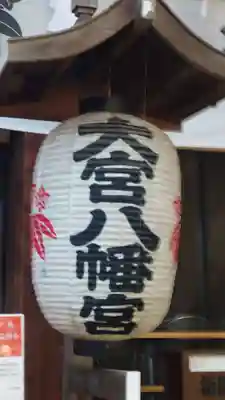 宮八幡宮